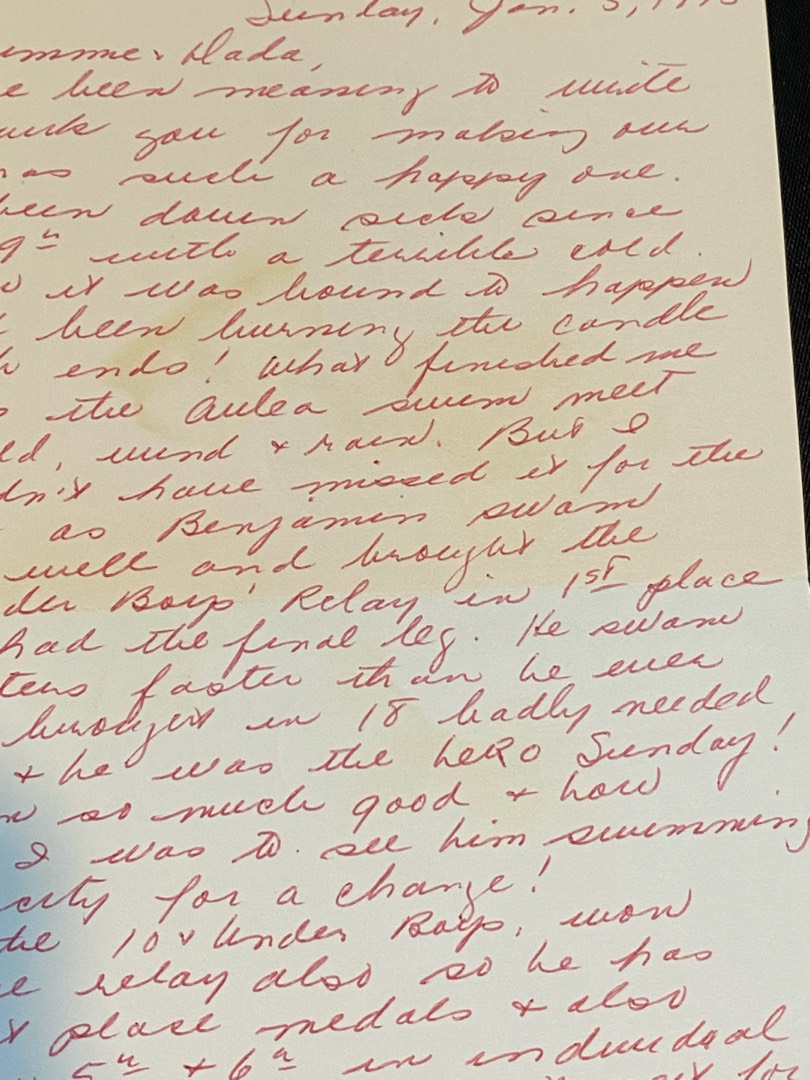 Sunday, Jan. 5, 19
Dada,
been meaning to write
you for making our
such a happy one.
been down sick since
9th with a terrible cold.
it was bound to happen
been burning the candle
ends! What finished me
the Aulea swim meet
wind & rain. But I
have missed it for the
as Benjamin swam
well and brought the
Boys' Relay in 1st place
had the final leg. He swam
faster than he ever
brought in 18 badly needed
& he was the heRo Sunday!
so much good & how
I was to see him swimming
city for a change!
the 10 & Under Boys, won
relay also so he has
place medals & also
5th & 6th in individual
for